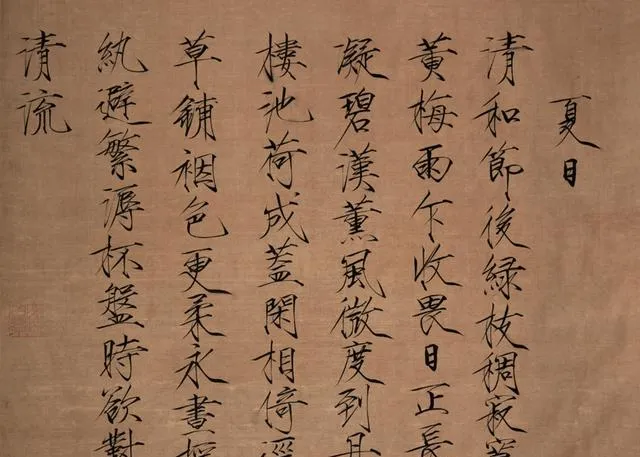 夏日
清和節後綠枝稠寂
黃梅雨乍收畏日正長
凝碧漢薰風微度到丹
樓池荷成蓋閑相倚逕
草鋪裀色更柔永晝
紈避繁溽杯盤時欲對
清流